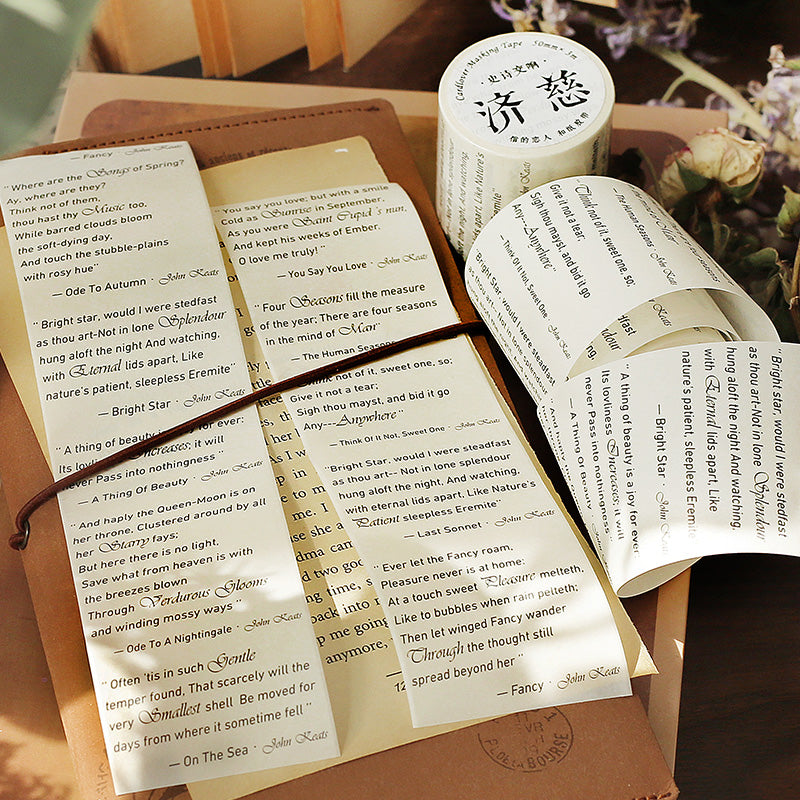 — Fancy · John Keats
" Where are the Songs of Spring?
Ay, where are they?
Think not of them,
thou hast thy Music too,
While barred clouds bloom
the soft-dying day,
And touch the stubble-plains
with rosy hue"
— Ode To Autumn · John Keats
" Bright star, would I were stedfast
as thou art-Not in lone Splendour
hung aloft the night And watching,
with Eternal lids apart, Like
nature's patient, sleepless Eremite"
— Bright Star · John Keats
" A thing of beauty is a joy for ever:
Its lovliness Increases; it will
never Pass into nothingness "
— A Thing Of Beauty · John Keats
" And haply the Queen-Moon is on
her throne, Clustered around by all
her Starry fays;
But here there is no light,
Save what from heaven is with
the breezes blown
Through Verdurous Glooms
and winding mossy ways "
— Ode To A Nightingale · John Keats
" Often 'tis in such Gentle
temper found, That scarcely will the
very Smallest shell Be moved for
days from where it sometime fell "
— On The Sea · John Keats
"You say you love; but with a smile
Cold as Sunrise in September,
As you were Saint Cupid's nun,
And kept his weeks of Ember.
O love me truly! "
— You Say You Love · John Keats
" Four Seasons fill the measure
of the year; There are four seasons
in the mind of Man"
— The Human Seasons
Think not of it, sweet one, so;
Give it not a tear;
Sigh thou mayst, and bid it go
Any---Anywhere "
— Think Of It Not, Sweet One · John Keats
"Bright Star, would I were stedfast
as thou art-- Not in lone splendour
hung aloft the night, And watching,
with eternal lids apart, Like Nature's
Patient sleepless Eremite"
— Last Sonnet · John Keats
"Ever let the Fancy roam,
Pleasure never is at home:
At a touch sweet Pleasure melteth,
Like to bubbles when rain pelteth;
Then let winged Fancy wander
Through the thought still
spread beyond her "
— Fancy · John Keats
Cardlover Masking Tape 50mm × 3m
· 史诗交响 ·
济慈
信的恋人 和纸胶带
— The Human Seasons · John Keats
"Think not of it, sweet one, so;
Give it not a tear;
Sigh thou mayst, and bid it go
Any---Anywhere"
— Think Of It Not, Sweet One · John Keats
"Bright Star, would I were stedfast
as thou art-- Not in lone splendour
"Bright star, would I were stedfast
as thou art-Not in lone Splendour
hung aloft the night And watching,
with Eternal lids apart, Like
nature's patient, sleepless Eremite
— Bright Star · John Keats
" A thing of beauty is a joy for ever:
Its lovliness Increases; it will
never Pass into nothingness
— A Thing Of Beauty